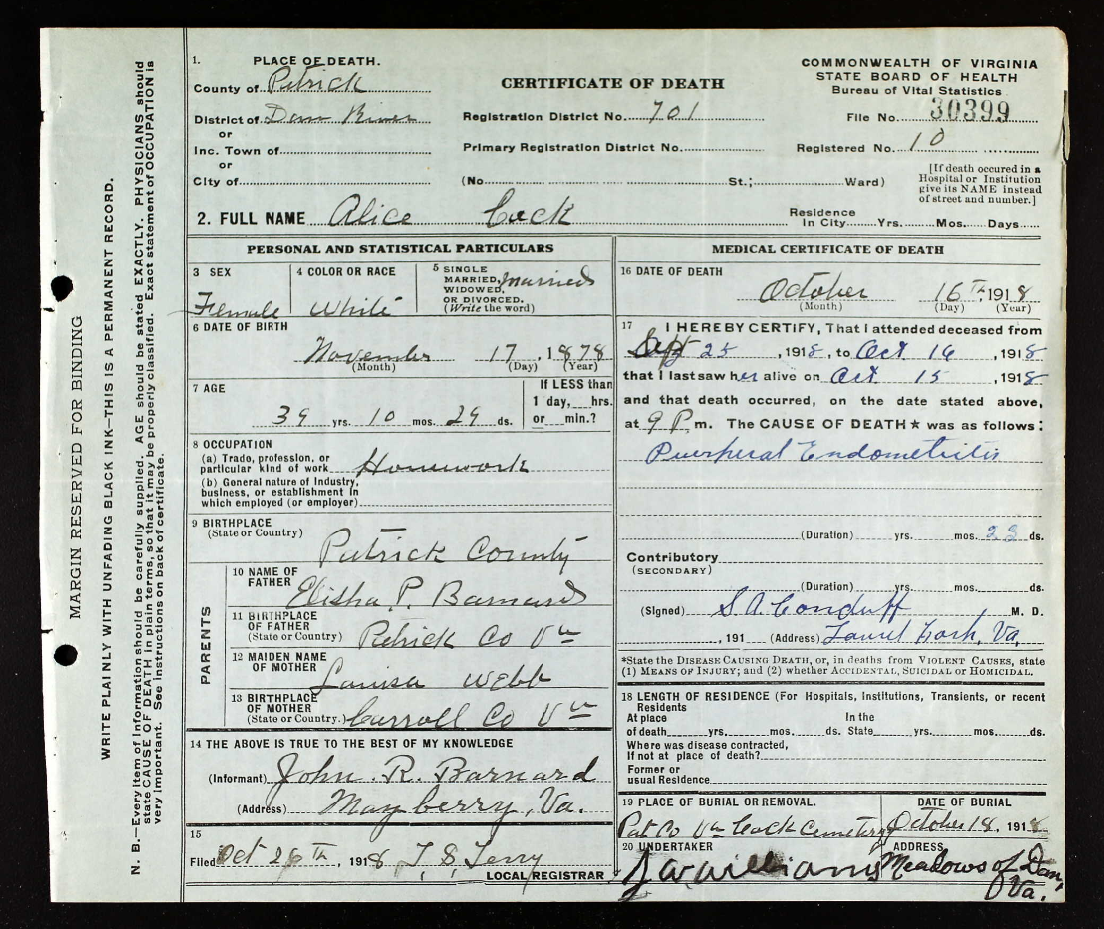 1. PLACE OF DEATH.
County of Patrick
District of Dan River
or
Inc. Town of
or
City of
CERTIFICATE OF DEATH
Registration District No. 701
Primary Registration District No.
(No. St.; Ward)
COMMONWEALTH OF VIRGINIA
STATE BOARD OF HEALTH
Bureau of Vital Statistics
File No. 30399
Registered No. 10
[If death occured in a
Hospital or Institution
give its NAME instead
of street and number.]
2. FULL NAME Alice Cock
Residence
In City Yrs. Mos. Days
PERSONAL AND STATISTICAL PARTICULARS
3 SEX
Female
4 COLOR OR RACE
White
5 SINGLE
MARRIED, Married
WIDOWED,
OR DIVORCED.
(Write the word)
6 DATE OF BIRTH
November 17, 1878
(Month) (Day) (Year)
7 AGE
39 yrs. 10 mos. 29 ds.
If LESS than
1 day, hrs.
or min.?
8 OCCUPATION
(a) Trade, profession, or
particular kind of work Housework
(b) General nature of Industry,
business, or establishment in
which employed (or employer)
9 BIRTHPLACE
(State or Country)
Patrick County
PARENTS
10 NAME OF
FATHER
Elisha P. Barnard
11 BIRTHPLACE
OF FATHER
(State or Country)
Patrick Co Va
12 MAIDEN NAME
OF MOTHER
Louisa Webb
13 BIRTHPLACE
OF MOTHER
(State or Country.) Carroll Co Va
14 THE ABOVE IS TRUE TO THE BEST OF MY KNOWLEDGE
(Informant) John R. Barnard
(Address) Mayberry, Va.
15
Filed Oct 26th, 1918 T. S. Terry
LOCAL REGISTRAR
MEDICAL CERTIFICATE OF DEATH
16 DATE OF DEATH
October 16th, 1918
(Month) (Day) (Year)
17 I HEREBY CERTIFY, That I attended deceased from
Sept 25, 1918, to Oct 16, 1918
that I last saw her alive on Oct 15, 1918
and that death occurred, on the date stated above,
at 9 P. m. The CAUSE OF DEATH★ was as follows:
Puerperal Endometritis
(Duration) yrs. mos. 23 ds.
Contributory
(SECONDARY)
(Duration) yrs. mos. ds.
(Signed) S. A. Conduff, M. D.
, 191 (Address) Laurel Fork, Va,
*State the DISEASE CAUSING DEATH, or, in deaths from VIOLENT CAUSES, state
(1) MEANS OF INJURY; and (2) whether ACCIDENTAL, SUICIDAL or HOMICIDAL.
18 LENGTH OF RESIDENCE (For Hospitals, Institutions, Transients, or recent
Residents
At place In the
of death yrs. mos. ds. State yrs. mos. ds.
Where was disease contracted,
If not at place of death?
Former or
usual Residence
19 PLACE OF BURIAL OR REMOVAL.
Pat Co Va Cock Cemetery
DATE OF BURIAL
October 18, 1918
20 UNDERTAKER
J W Williams
ADDRESS
Meadows of Dan,
Va.
MARGIN RESERVED FOR BINDING
WRITE PLAINLY WITH UNFADING BLACK INK—THIS IS A PERMANENT RECORD.
N. B.—Every item of information should be carefully supplied. AGE should be stated EXACTLY. PHYSICIANS should
state CAUSE OF DEATH in plain terms, so that it may be properly classified. Exact statement of OCCUPATION is
very important. See instructions on back of certificate.